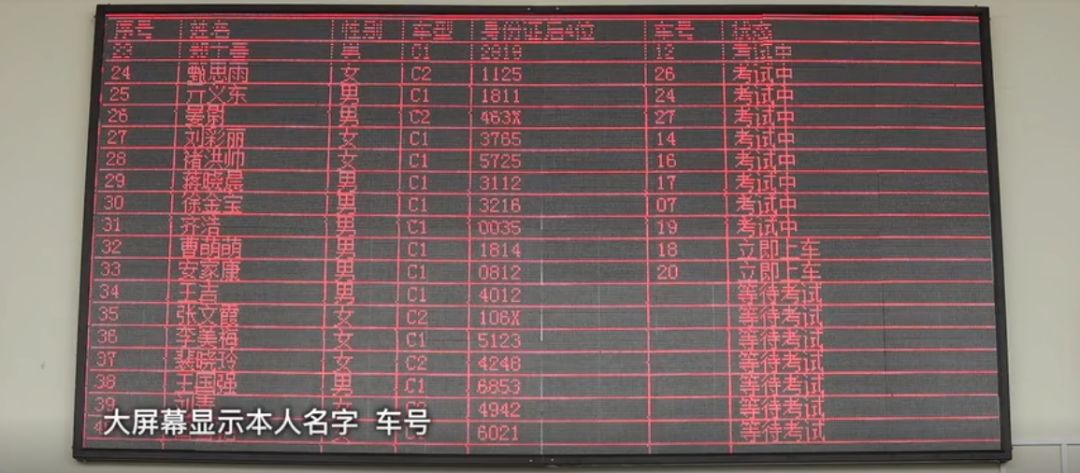 序号 姓名 性别 车型 身份证后4位 车号 状态
23 郑十喜 男 C1 2819 12 考试中
24 甄思雨 女 C2 1125 26 考试中
25 亓义东 男 C1 1811 24 考试中
26 晏尉 男 C2 463X 27 考试中
27 刘彩丽 女 C1 3765 14 考试中
28 褚洪帅 女 C1 5725 16 考试中
29 蒋晓晨 男 C1 3112 17 考试中
30 徐金宝 男 C1 3216 07 考试中
31 齐浩 男 C1 0035 19 考试中
32 曹萌萌 男 C1 1814 18 立即上车
33 安家康 男 C1 0812 20 立即上车
34 王吉 男 C1 4012 等待考试
35 张文霞 女 C2 106X 等待考试
36 李美梅 女 C1 5123 等待考试
37 裴晓玲 女 C2 4248 等待考试
38 王国强 男 C1 6853 等待考试
39 4942 等待考试
6021 等待考试
大屏幕显示本人名字 车号